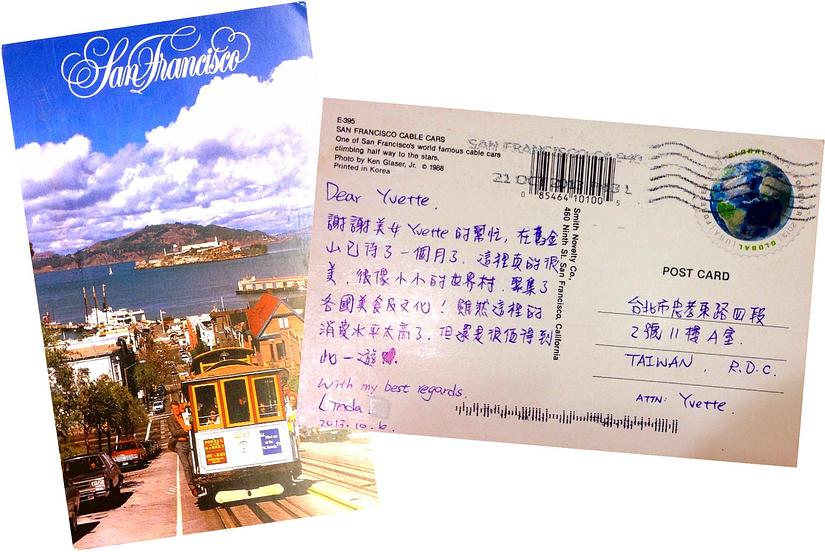 San Francisco
E-395
SAN FRANCISCO CABLE CARS
One of San Francisco's world famous cable cars
climbing half way to the stars.
Photo by Ken Glaser, Jr. © 1988
Printed in Korea
SAN FRANCISCO CA 940
21 OCT
0 85464 10100 5
Smith Novelty Co.,
460 Ninth St. San Francisco, California
Dear Yvette.
謝謝美女 Yvette 的幫忙, 在舊金
山已待了一個月了. 這裡真的很
美, 很像小小的世界村. 聚集了
各國美食及文化! 雖然這裡的
消費水平太高了, 但還是很值得到
此一遊.
With my best regards.
Linda
2013.10.6.
GLOBAL
GLOBAL
POST CARD
台北市忠孝東路四段
2號11樓A室.
TAIWAN, R.O.C.
ATTN: Yvette.